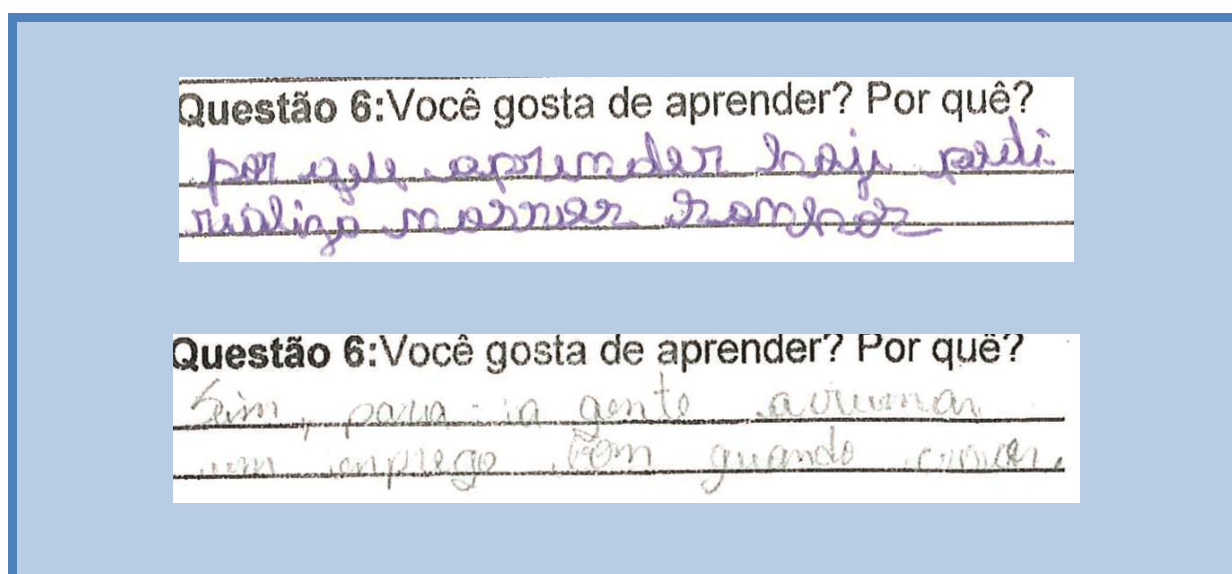 Questão 6:Você gosta de aprender? Por quê?
por que aprender hoje
Questão 6:Você gosta de aprender? Por quê?
Sim, para a gente arrumar
um emprego bom quando crescer.